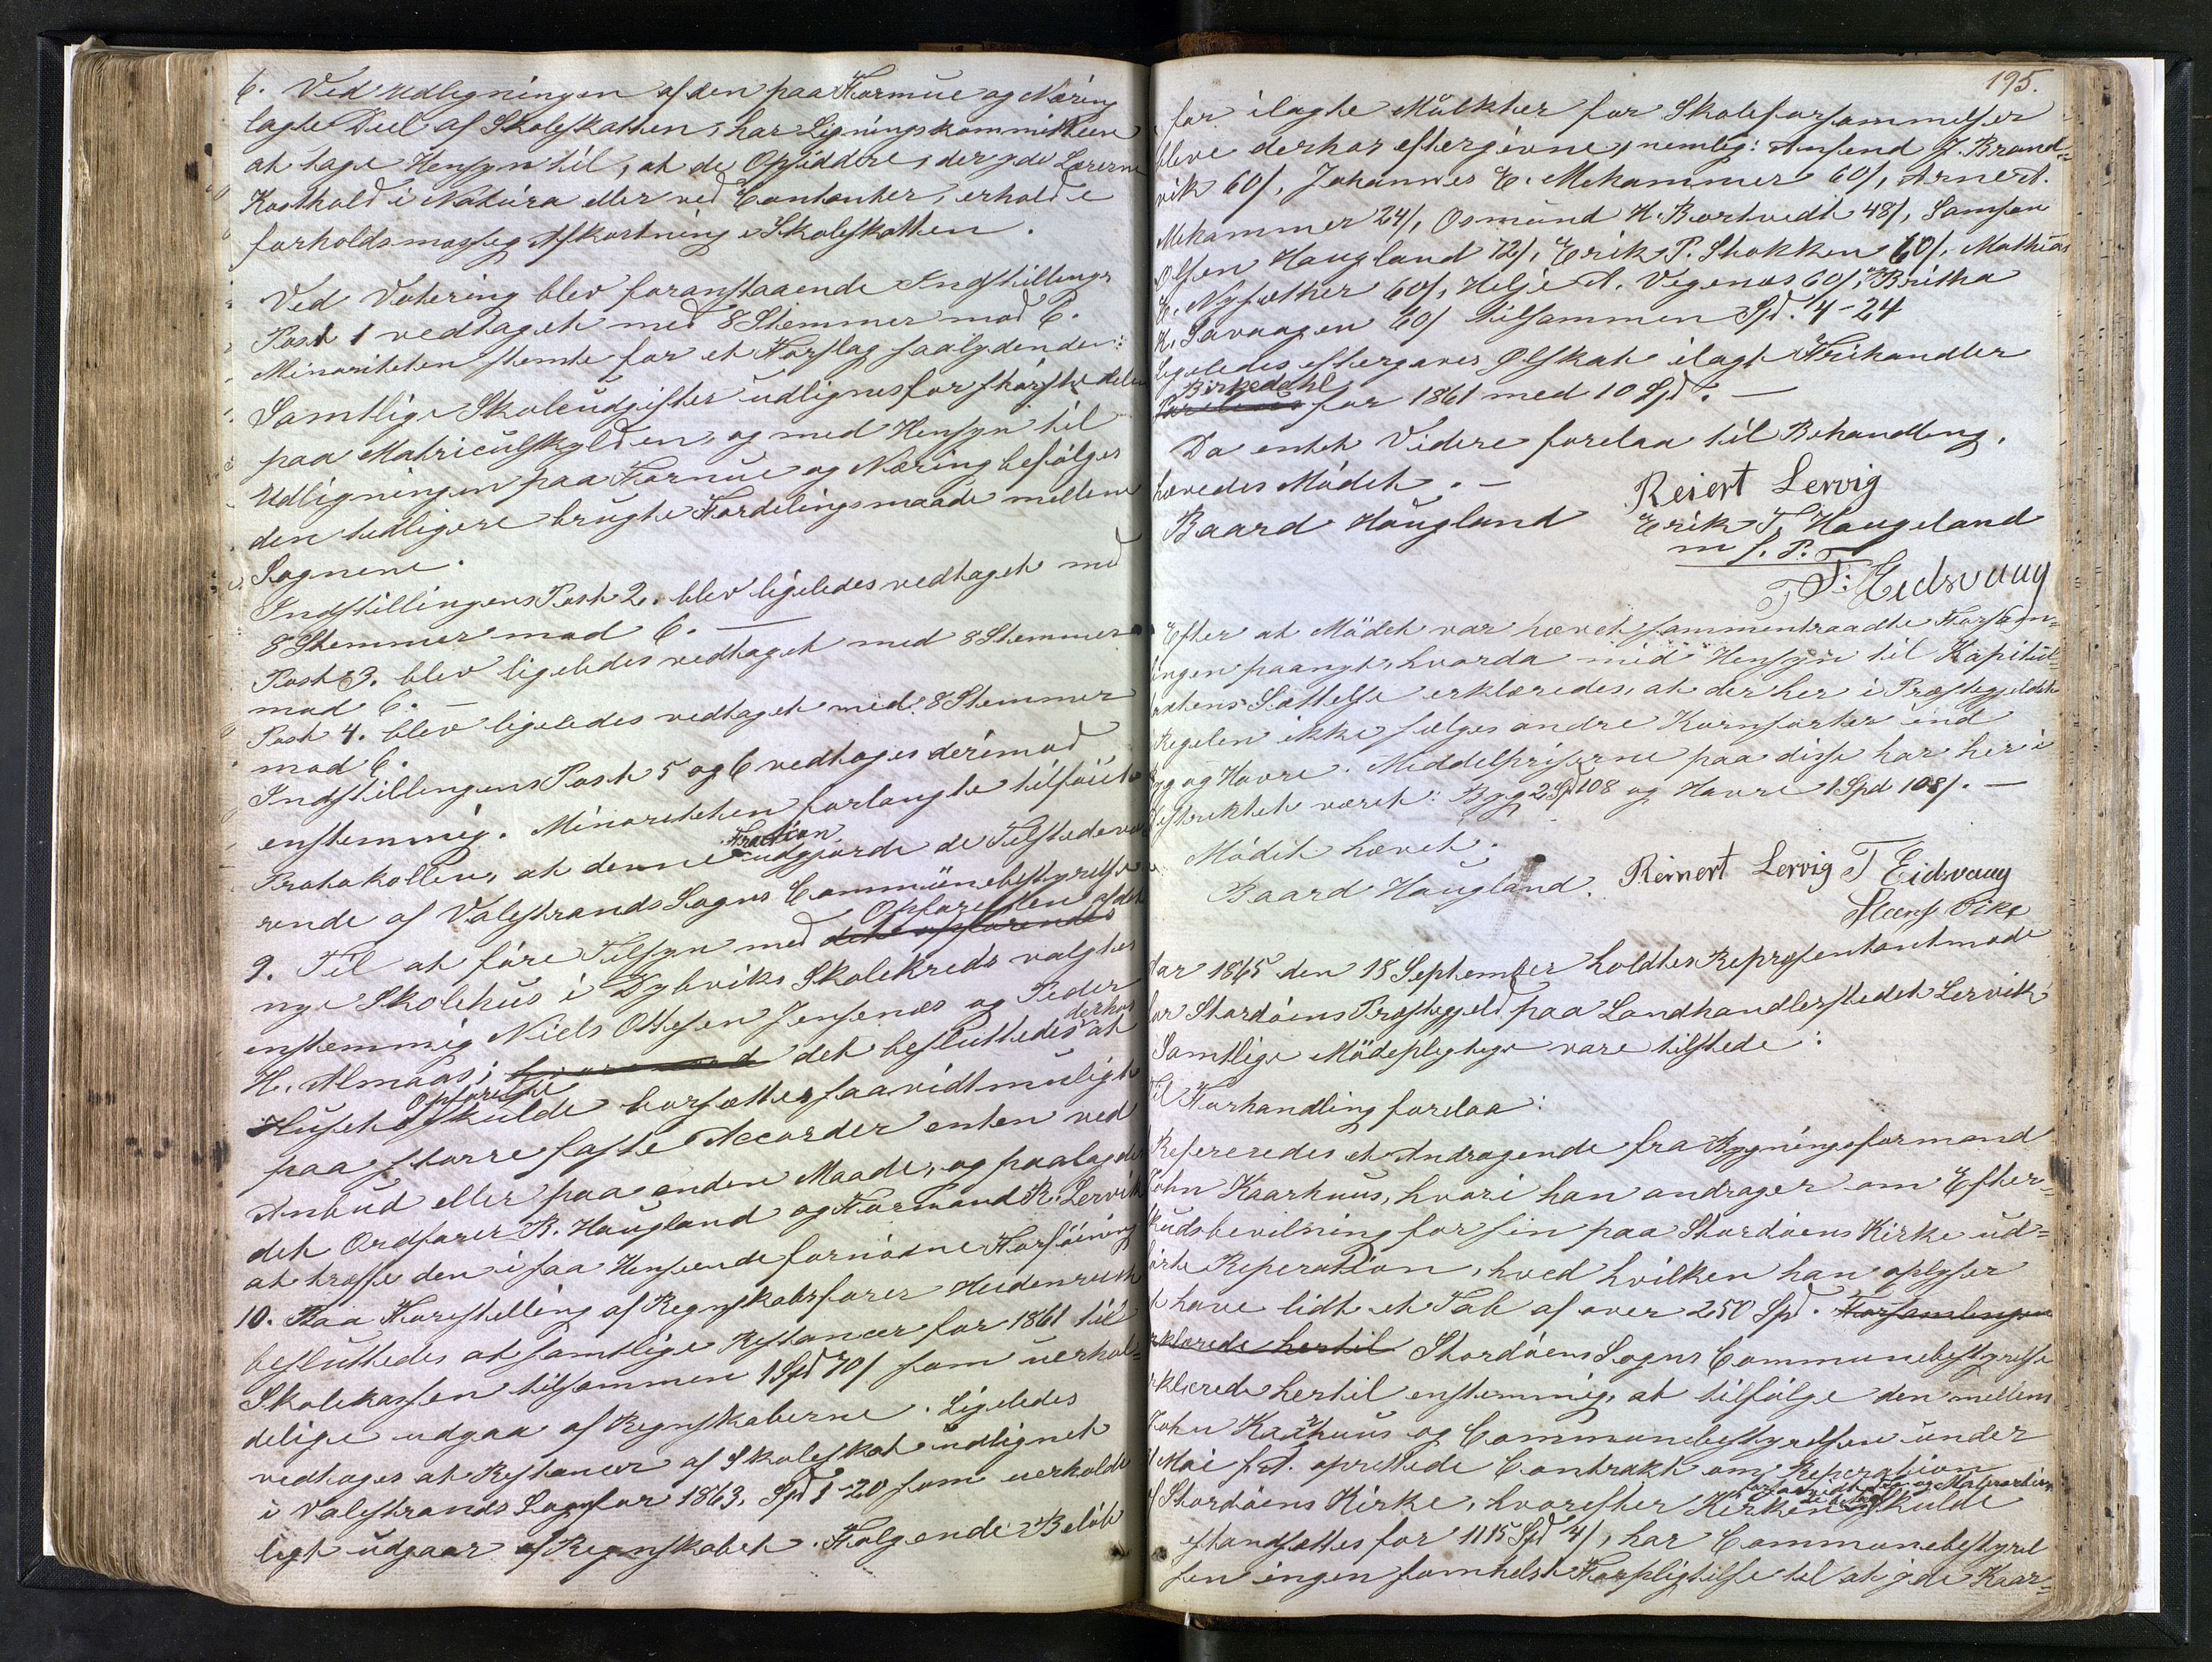 6. Ved Udligningen af den paa Formue og Næring
lagte Deel af Skoleskatten, har Ligningskommitteen
at tage Hensyn til, at de Opsiddere, der yde Lærerne
Kosthold i Natura eller ved Contanter, erholde
forholdsmæssig Afkortning i Skoleskatten.
Ved Votering blev foranstaaende Indstillings
Post 1 vedtaget med 8 Stemmer mod 6.
Minoriteten stemte for et Forslag saalydende:
Samtlige Skoleudgifter udlignes for største Delen
paa Matriculskylden, og med Hensyn til
Udligningen paa Formue og Næring befølges
den tidligere brugte Fordelingsmaade mellem
Sognene.
Indstillingens Post 2. blev ligeledes vedtaget med
8 Stemmer mod 6.
Post 3. blev ligeledes vedtaget med 8 Stemmer
mod 6.
Post 4. blev ligeledes vedtaget med 8 Stemmer
mod 6.
Indstillingens Post 5 og 6 vedtoges derimod
enstemmig. Minoriteten forlangte tilføiet
Protokollen, at denne Fraction udgjorde de Tilstedevæ
rende af Valestrands Sogns Communebestyrelse
9. Til at føre Tilsyn med det opførende Opførelsen af det
nye Skolehus i Dybviks Skolekreds valgtes
enstemmig Niels Ottesen Jensenæs og Peder
H. Almaas; det besluttedes derhos at
Husets Opførelse skulde bortsættes saavidt muligt
paa større faste Accorder enten ved
Anbud eller paa anden Maade, og paalagdes
det Ordfører B. Haugland og Formand R. Lervik
at træffe den i saa Henseende fornødne Forføining
10. Paa Forestilling af Regnskabsfører Heidenreich
besluttedes at samtlige Restancer for 1861 til
Skolekassen tilsammen 1 Spd 70 s som uerhol=
delige udgaa af Regnskaberne. Ligeledes
vedtoges at Restancer af Skoleskat udlignet
i Valestrands Sogn for 1863, Spd 1-20 som uerholde
ligt udgaar af Regnskabet. Følgende Beløb
195.
for ilagte Mulkter for Skoleforsømmelser
bleve derhos eftergivne, nemlig: Amsend J. Brand=
vik 60 s, Johannes E. Mehammer 60 s, Arne A.
Mehammer 24 s, Osmund H. Bortvedt 48 s, Samson
Olsen Haugland 72 s, Erik P. Stokken 60 s, Mathias
E. Nysæther 60 s, Helje A. Vegenæs 60 s, Britha
K. Sævaagen 60 s tilsammen Spd. 4-24
ligeledes eftergaves Ølskat ilagt Frihandler
Birkedahl for 1861 med 10 Spd. —
Da intet Videre forelaa til Behandling,
hævedes Mødet. —
Reiert Lervig
Baard Haugland Erik T. Haugeland
m. f. P.
T: Eidsvaag
Efter at Mødet var hævet sammentraadte Forsam=
lingen paanyt, hvorda med Hensyn til Kapitul=
taxtens Sættelse erklæredes, at der her i Præstegjeldet
i Regelen ikke sælges andre Kornsorter end
Byg og Havre. Middelpriserne paa disse har her i
Distriktet været: Byg 2 Spd 108 og Havre 1 Spd 108 s. —
Mødet hævet.
Baard Haugland. Reinert Lervig T Eidsvaag
Steens Vike
Aar 1865 den 18 September holdtes Repræsentantmøde
for Stordøens Præstegjeld paa Landhandlerstedet Lervik
Samtlige Mødepligtige vare tilstede:
Til Forhandling forelaa:
Refereredes et Andragende fra Bygningsformand
John Kaarhuus, hvori han andrager om Efter=
skudsbevilning for sin paa Stordøens Kirke ud=
førte Reperation, hved hvilken han oplyser
at have lidt et Tab af over 250 Spd. Forsamlingen
erklærede hertil Stordøens Sogns Communebestyrelse
erklærede hertil enstemmig, at tilfølge den mellem
John Kaarhuus og Communebestyrelsen under
Mai f. A. oprettede Contrakt om Reperation
af Stordøens Kirke, hvorefter Kirken skulde
istandsættes for 1115 Spd 4 s, har Communebestyrel
sen ingen somhelst Forpligtelse til at yde Kaar=